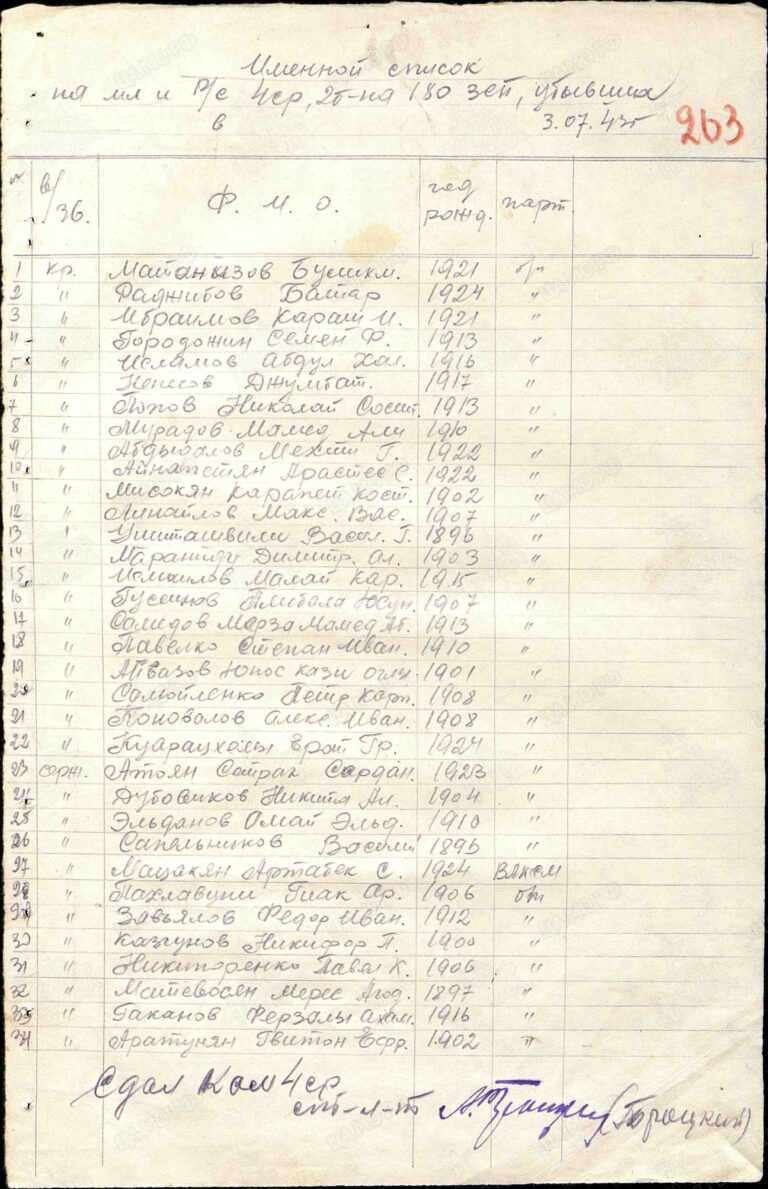 Именной список
на мл и р/с 4ср, 2б-на 180 зсп, убывших
в 3.07.43г 263
№ в/зв. Ф. И. О. год рожд. парт.
1 кр. Матаниязов Бушкм. 1921 б/п
2 " Раджипов Батар 1924 "
3 " Ибраимов Караш И. 1921 "
4 " Городожин Семен Ф. 1913 "
5 " Исламов Абдул Хал. 1916 "
6 " Кенесов Джумбат. 1917 "
7 " Попов Николай 1913 "
8 " Мурадов Мамед Али 1910 "
9 " Мехти Г. 1922 "
10 " Айнапетян С. 1922 "
11 " Мисокян Карапет Кост. 1902 "
12 " Макс. Вас. 1907 "
13 " Васил. Г. 1896 "
14 " Димитр. Ал. 1903 "
15 " Исмаилов Малай Кар. 1915 "
16 " Гусейнов Алибала Юсуп. 1907 "
17 " Самидов Мерза Мамед 1913 "
18 " Павелко Степан Иван. 1910 "
19 " Айвазов Юнос кази оглы 1901 "
20 " Самойленко Петр Карп. 1908 "
21 " Коновалов Алекс. Иван. 1908 "
22 " Гр. 1924 "
23 серж. Атоян Сатрак Сардан. 1923 "
24 " Дубовиков Никита Ал. 1904 "
25 " Эльданов Омай Эльд. 1910 "
26 " Сапельников Василий 1895 "
27 " Мацакян Артабек С. 1924 ВЛКСМ
28 " Пахлавуни Гиак Ар. 1906 б/п
29 " Завьялов Федор Иван. 1912 "
30 " Казгунов Никифор П. 1900 "
31 " Никипоренко Павел К. 1906 "
32 " Матевосен Мерес Агод. 1897 "
33 " Гаканов Ферзалы Ахам. 1916 "
34 " Аратунян Гвитон Ефр. 1902 "
Сдал Ком 4ср
ст-л-т (Горацкий)